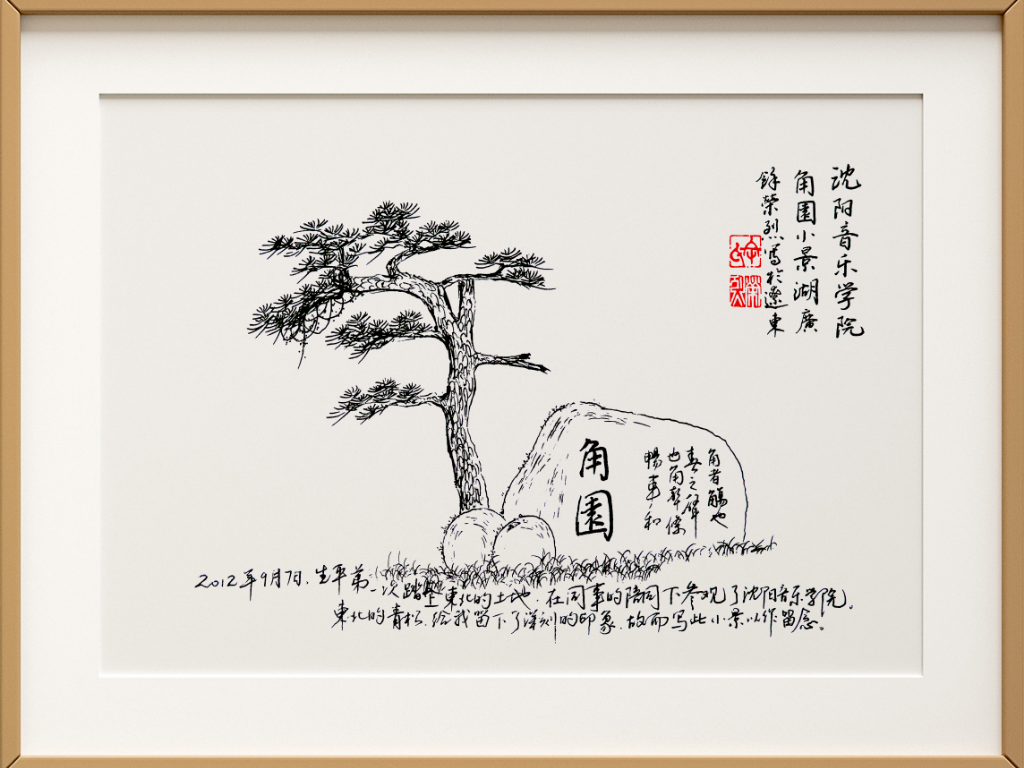 沈阳音乐学院
角園小景湖廣
餘榮烈寫於遼東
角園
角者觸也
春之
也角聲條
暢事和
2012年9月7日.生平第一次踏上東北的土地.在同事的陪同下参观了沈阳音乐学院.
東北的青松.给我留下了深刻的印象.故而写此小景以作留念.